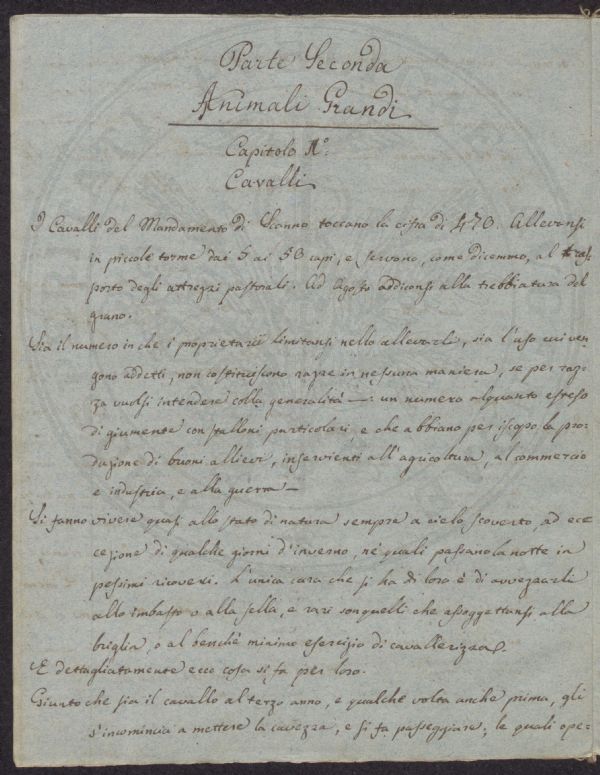 Parte Seconda
Animali Grandi
Capitolo 1º:
Cavalli
I Cavalli del Mandamento di Scanno toccano la cifra di 470. Allevansi
in piccole torme dai 5 ai 50 capi, e servono, come dicemmo, al tras-
porto degli attrezzi pastorali. Ad Agosto addiconsi alla trebbiatura del
grano.
Sia il numero in che i proprietarii limitansi nello allevarli, sia l'uso cui ven-
gono addetti, non costituiscono razze in nessuna maniera, se per raz-
za vuolsi intendere colla generalità —: un numero alquanto esteso
di giumente con stalloni particolari, e che abbiano per iscopo la pro-
duzione di buoni allievi, inservienti all'agricoltura, al commercio
e industria, e alla guerra —
Si fanno vivere quasi allo stato di natura sempre a cielo scoverto, ad ec-
cezione di qualche giorni d'inverno, ne' quali passano la notte in
pessimi ricoveri. L'unica cura che si ha di loro è di avvezzarli
allo imbasto o alla sella, e rari son quelli che assoggettansi alla
briglia, o al benchè minimo esercizio di cavallerizza.
E dettagliatamente ecco cosa si fa per loro.
Giunto che sia il cavallo al terzo anno, e qualche volta anche prima, gli
s'incomincia a mettere la cavezza, e si fa passeggiare; le quali ope-